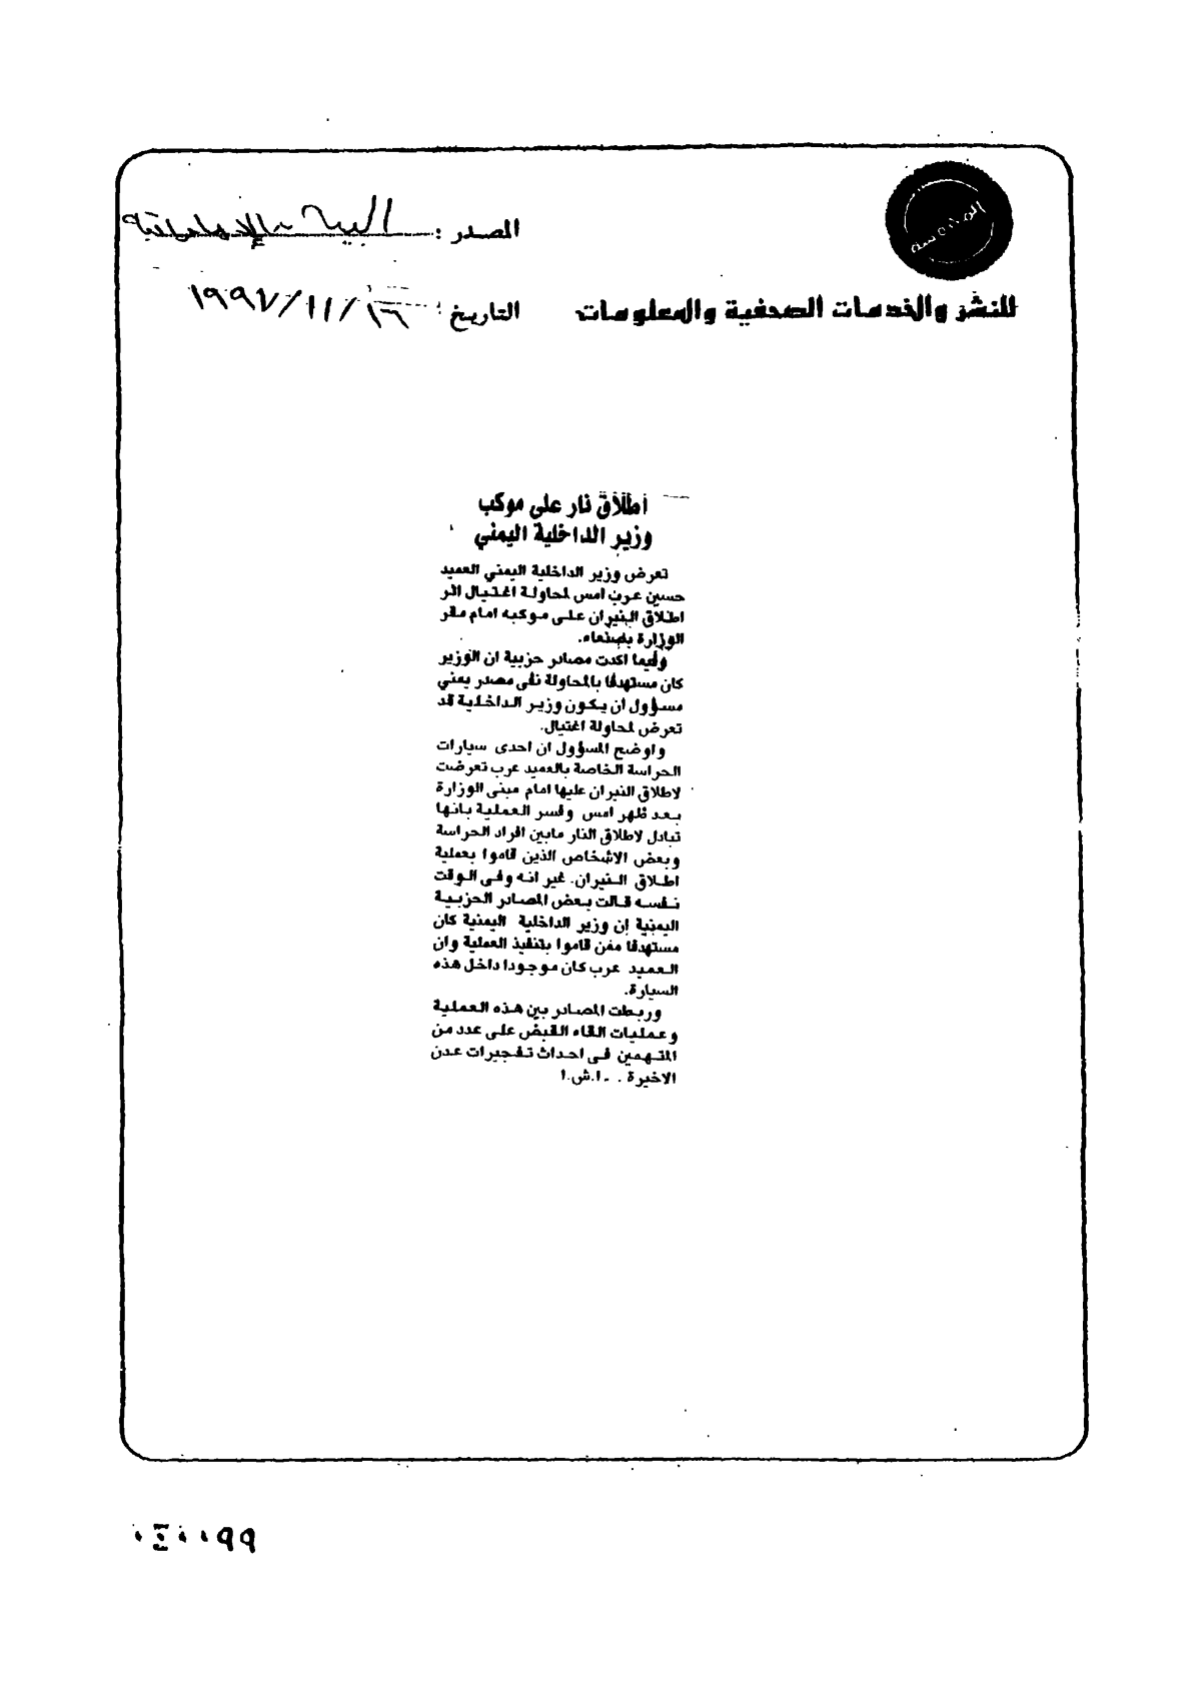 المصدر : البيان الإماراتية
للنشر والخدمات الصحفية والمعلومات
التاريخ : ١٦ / ١١ / ١٩٩٧
اطلاق نار على موكب
وزير الداخلية اليمني
تعرض وزير الداخلية اليمني العميد
حسين عرب امس لمحاولة اغتيال اثر
اطلاق النيران على موكبه امام مقر
الوزارة بصنعاء.
وفيما اكدت مصادر حزبية ان الوزير
كان مستهدفا بالمحاولة نفى مصدر يمني
مسؤول ان يكون وزير الداخلية قد
تعرض لمحاولة اغتيال.
واوضح المسؤول ان احدى سيارات
الحراسة الخاصة بالعميد عرب تعرضت
لاطلاق النيران عليها امام مبنى الوزارة
بعد ظهر امس وفسر العملية بانها
تبادل لاطلاق النار مابين افراد الحراسة
وبعض الاشخاص الذين قاموا بعملية
اطلاق النيران. غير انه وفى الوقت
نفسه قالت بعض المصادر الحزبية
اليمنية إن وزير الداخلية اليمنية كان
مستهدفا ممن قاموا بتنفيذ العملية وان
العميد عرب كان موجودا داخل هذه
السيارة.
وربطت المصادر بين هذه العملية
وعمليات القاء القبض على عدد من
المتهمين فى احداث تفجيرات عدن
الاخيرة . ـ ا.ش.ا